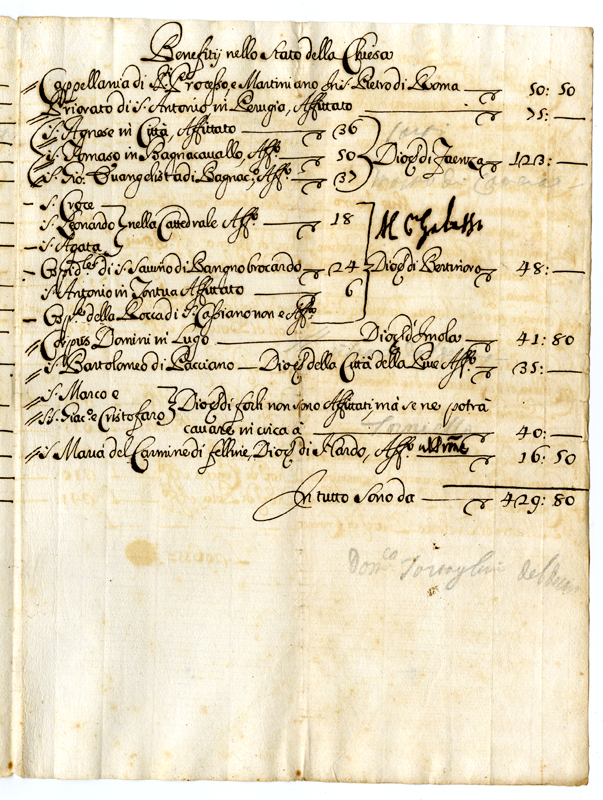 Benefitij nello Stato della Chiesa
Cappellania di SS. Processo, e Martiniano in S. Pietro di Roma 50: 50
Priorato di S. Antonio in Perugia, Affittato 75: —
S. Agnese in Città, Affittato 36
S. Tomaso in Bagnacavallo, Affo. 50 Dioc. di Faenza 123: —
S. Gio: Evangelista di Bagnac.o Affo. 37
S. Croce
S. Leonardo nella Cattedrale Affo. 18
S. Agata
di S. Savino di brocardo 24 Dioc. di Bertinoro 48: —
S. Antonio in Affittato 6
della Rocca di S. Cassiano non è Affo.
Corpus Domini in Lugo Dioc. d'Imola 41: 80
S. Bartolomeo di Pacciano — Dioc. della Città della Pieve Affo. 35: —
S. Marco e
SS. Giac.o e Cristofaro Dioc. di forlì non sono Affittati mà se ne potrà
cavare in circa à 40: —
S. Maria del Carmine di felline, Dioc. di Nardo, Affo. 16: 50
In tutto sono da 429: 80
Dom.co